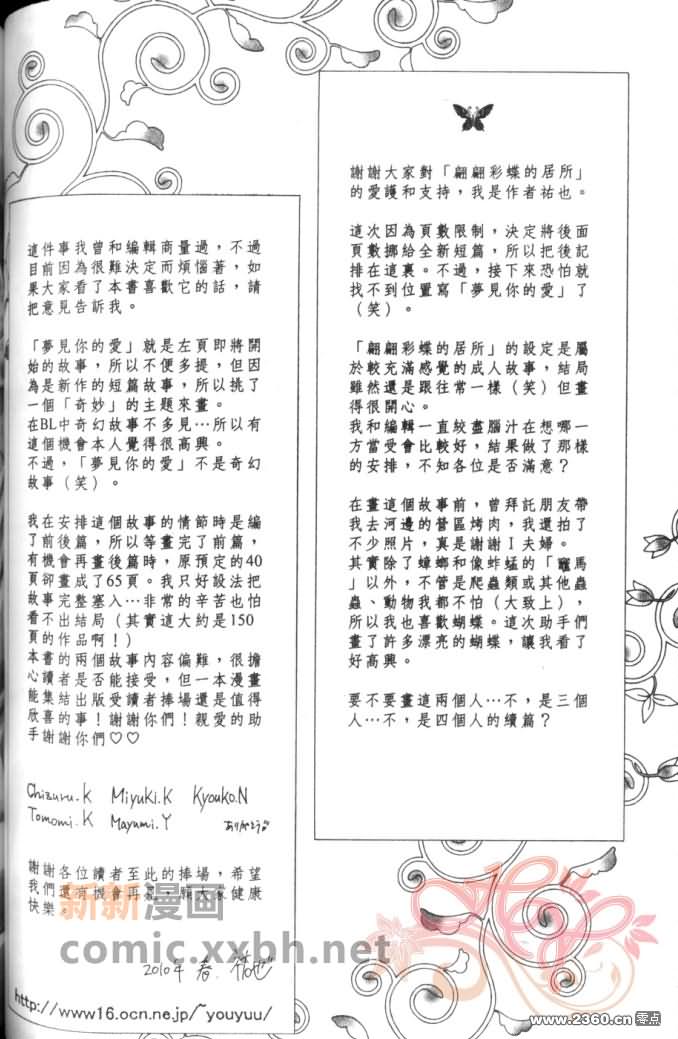 謝謝大家對「翩翩彩蝶的居所」
的愛護和支持，我是作者祐也。
這次因為頁數限制，決定將後面
頁數挪給全新短篇，所以把後記
排在這裏。不過，接下來恐怕就
找不到位置寫「夢見你的愛」了
（笑）。
「翩翩彩蝶的居所」的設定是屬
於較充滿感覺的成人故事，結局
雖然還是跟往常一樣（笑）但畫
得很開心。
我和編輯一直絞盡腦汁在想哪一
方當受會比較好，結果做了那樣
的安排，不知各位是否滿意？
在畫這個故事前，曾拜託朋友帶
我去河邊的營區烤肉，我還拍了
不少照片，真是謝謝I夫婦。
其實除了蟑螂和像蚱蜢的「竈馬
」以外，不管是爬蟲類或其他昆
蟲、動物我都不怕（大致上），
所以我也喜歡蝴蝶。這次助手們
畫了許多漂亮的蝴蝶，讓我看了
好高興。
要不要畫這兩個人…不，是三個
人…不，是四個人的續篇？
這件事我曾和編輯商量過，不過
目前因為很難決定而煩惱著，如
果大家看了本書喜歡它的話，請
把意見告訴我。
「夢見你的愛」就是左頁即將開
始的故事，所以不便多提，但因
為是新作的短篇故事，所以挑了
一個「奇妙」的主題來畫。
在BL中奇幻故事不多見…所以有
這個機會本人覺得很高興。
不過，「夢見你的愛」不是奇幻
故事（笑）。
我在安排這個故事的情節時是編
了前後篇，所以等畫完了前篇，
有機會再畫後篇時，原預定的40
頁卻畫成了65頁。我只好設法把
故事完整塞入…非常的辛苦也怕
看不出結局（其實這大約是150
頁的作品啊！）
本書的兩個故事內容偏難，很擔
心讀者是否能接受，但一本漫畫
能集結出版受讀者捧場還是值得
欣喜的事！謝謝你們！親愛的助
手謝謝你們♡♡
Chizuru.K Miyuki.K Kyouko.N
Tomomi.K Mayumi.Y ありがとう
謝謝各位讀者至此的捧場，希望
我們還有機會再見，願大家健康
快樂。
2010年 春. 祐也
http://www16.ocn.ne.jp/~youyuu/
新新漫画
comic.xxbh.net
www.2360.cn 零点